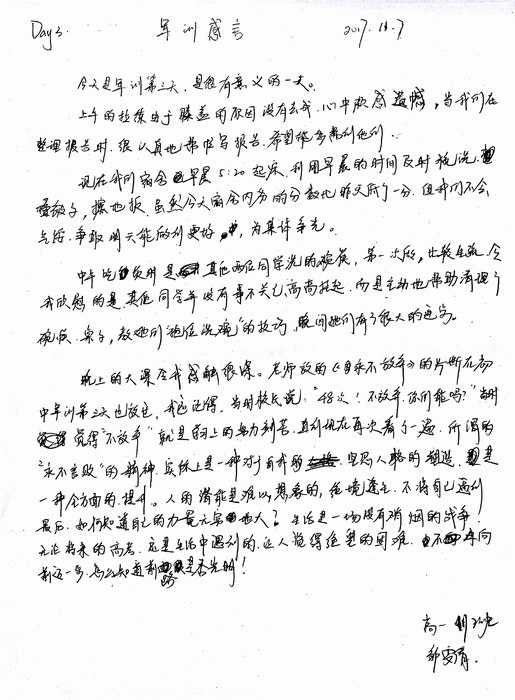 Day3. 军训感言 2017.11.7
今天是军训第三天，是很有意义的一天。
上午的拉练由于膝盖的原因没有去成，心中颇感遗憾，当我们在
整理报告时，很认真地书写报告，希望能够得到
现在我们宿舍早晨5:20起床，利用早晨的时间及时梳洗、
叠被子，摆地板。虽然今天宿舍内务的分数比昨天低了一分，但我们不会
气馁，争取明天能做到更好，为集体争光。
中午吃饭时是其他两位同学洗的碗筷，第一次戏，比较生疏，令
我欣慰的是，其他同学并没有事不关己高高挂起，而是主动地帮助清理了
碗筷、桌子，教她们"洗碗"的技巧，瞬间她们有了很大的进步。
晚上的大课令我感触很深。老师放的《永不放弃》的片断在初
中军训第三天也放过，我还记得，当时校长说："48次！不放弃，你们能吗？"当时
觉得"不放弃"就是身上的努力刻苦，直到现在再次看了一遍，所谓的
"永不言败"的精神，实际上是一种对于自我的、坚强人格的塑造，更是
一种全方面的提升。人的潜能是难以想象的，绝境逢生，不将自己逼到
最后，如何知道自己的力量究竟他大？生活是一场没有硝烟的战争，
无论将来的高考，还是生活中遇到的让人觉得绝望的困难，不向
前迈一步，怎么知道前路是否光明！
高一